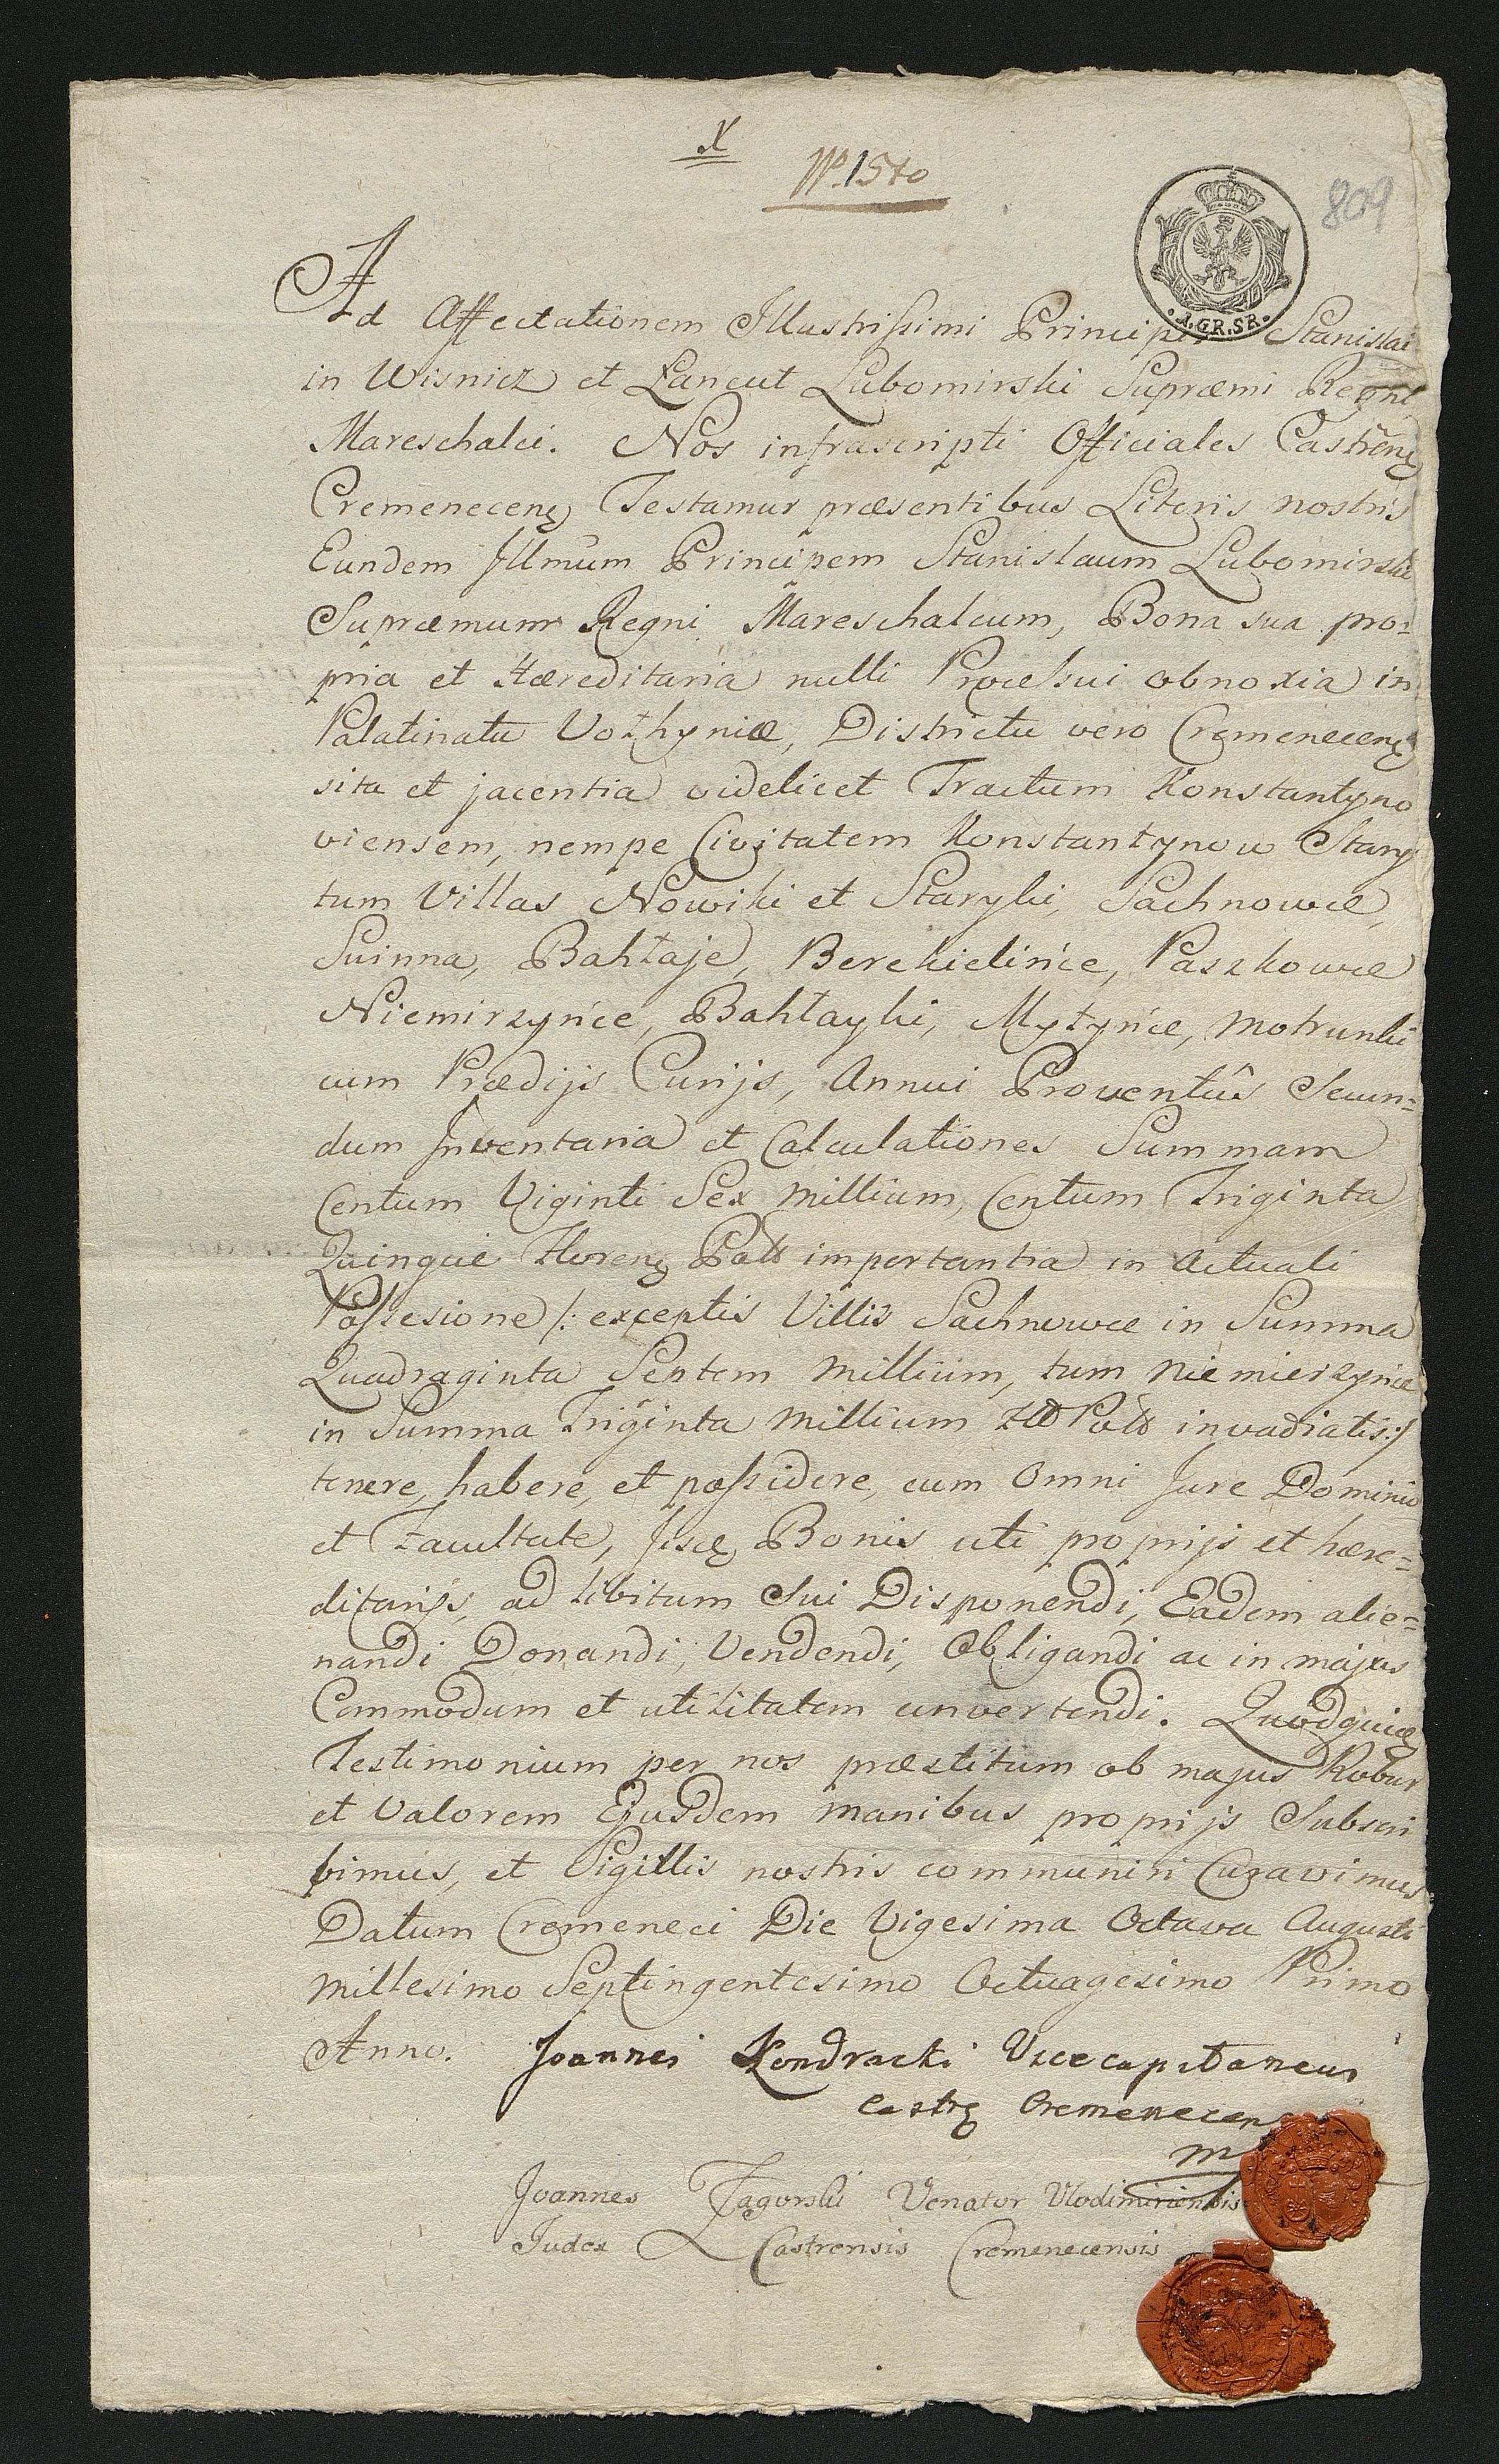 X
No. 1540
809
1.GR.SR.
Ad Affectationem Illustrissimi Principis Stanislai
in Wisnicz et Łancut Lubomirski Supræmi Regni
Mareschalci. Nos infrascripti Officiales Castrenę
Cremenecenę Testamur præsentibus Literis nostris
Eundem Illmum Principem Stanislaum Lubomirski
Supræmum Regni Mareschalcum, Bona sua pro=
pria et Hæreditaria nulli Processui obnoxia in
Palatinatu Vołhyniæ, Districtu vero Cremenecenę
sita et jacentia videlicet Tractum Konstantyno
viensem, nempe Civitatem Konstantynow Stary
tum Villas Nowiki et Staryki, Sachnowce,
Suinna, Bahłaje, Berekielińce, Paszkowce
Niemirzyńce, Bahłayki, Mytyńce, Motrunki
cum Prædijs Curijs, Annui Proventûs Secun=
dum Inventaria et Calculationes Summam
Centum Viginti Sex Millium, Centum Triginta
Quinque Florenę Pols importantia in Actuali
Possesione /: exceptis Villis Sachnowce in Summa
Quadraginta Septem Millium, tum Niemierzynce
in Summa Triginta Millium Pols invadiatis :/
tenere, habere, et possidere, cum Omni Jure Dominio
et Facultate, Bonis uti proprijs et hære=
ditarijs, ad libitum Sui Disponendi, Eadem alie=
nandi Donandi, Vendendi, Obligandi ac in majus
Commodum et utilitatem convertendi. Quodquidę
Testimonium per nos præstitum ob majus Robur
et Valorem Ejusdem manibus proprijs Subscri
bimus, et Sigillis nostris communiri Curavimus
Datum Cremeneci Die Vigesima Octava Augusti
Millesimo Septingentesimo Octuagesimo Primo
Anno. Joannes Kondracki Vicecapitaneus
Castrę Cremenecen
m
Joannes Zagorski Venator Vlodimiriensis
Judex Castrensis Cremenecensis